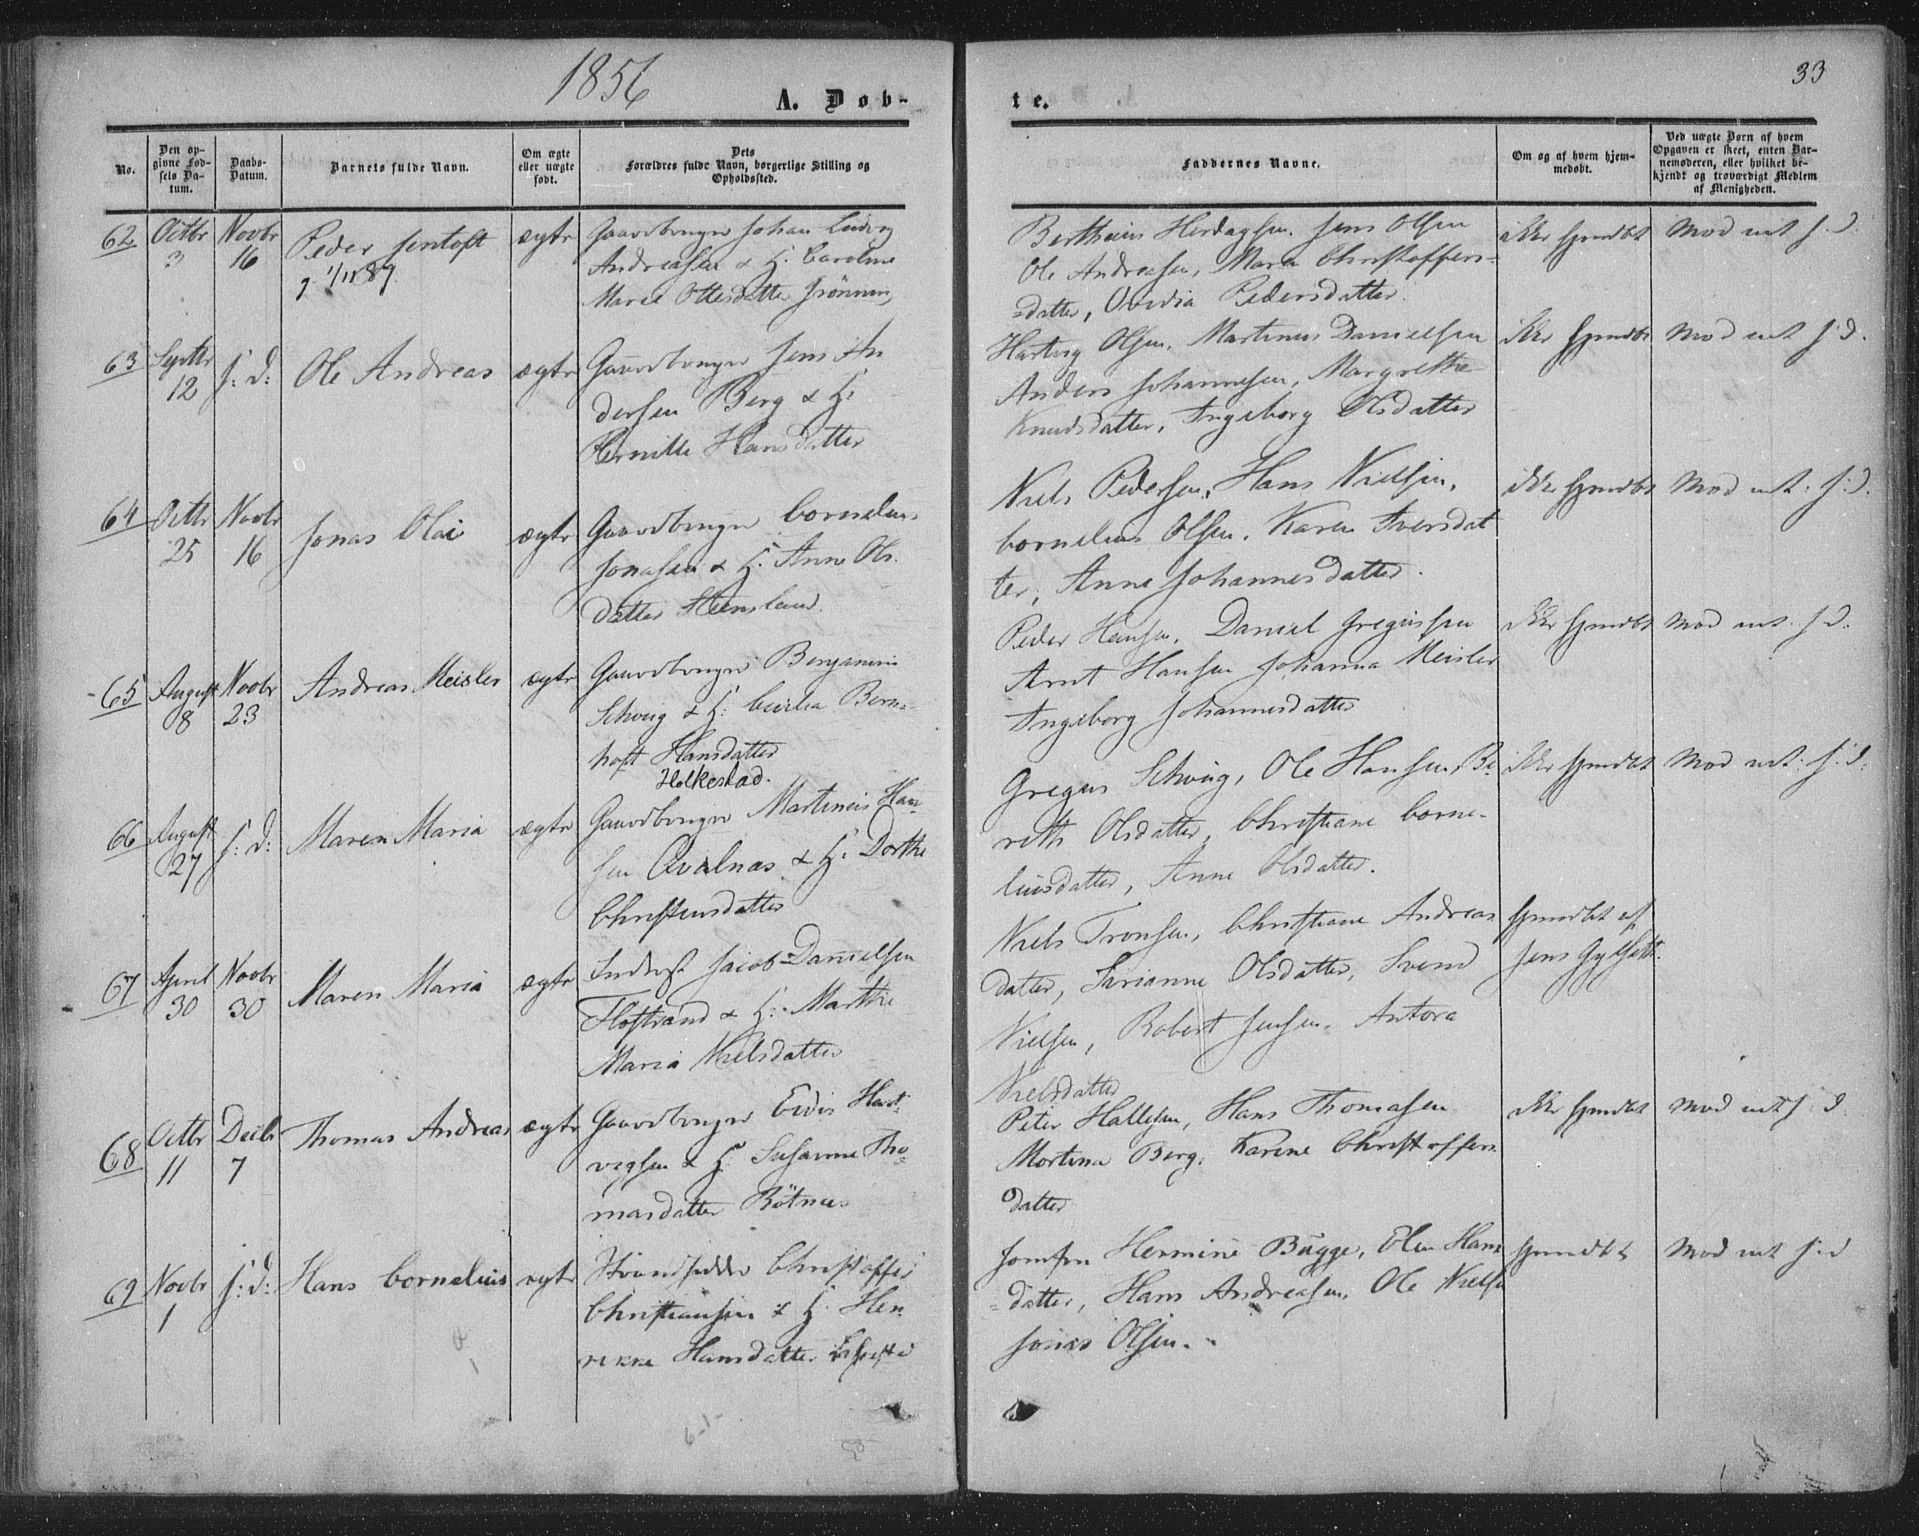 1856
33
A. Døb-
te.
No.
Den op-
givne Fød-
sels Da-
tum.
Daabs-
Datum.
Barnets fulde Navn.
Om ægte
eller uægte
født.
Dets
Forældres fulde Navn, borgerlige Stilling og
Opholdssted.
Faddernes Navne.
Om og af hvem hjem-
medøbt.
Ved uægte Børn af hvem
Opgaven er skeet, enten Bar-
nemoderen, eller hvilket be-
kjendt og troværdigt Medlem
af Menigheden.
62
Octbr
3
Novbr
16
Peder Jentoft
1/11 87
ægte
Gaardbruger Johan Ludvig
Andreasen & H. Caroline
Marie Ottesdatter
Hendagsen. Jens Olsen
Ole Andreasen, Maren Christoffers-
datter, Ovedia Pedersdatter.
ikke hjemdøbt
63
Septbr
12
s: d:
Ole Andreas
ægte
Gaardbruger Jens An
dersen Berg & H:
Pernille Hansdatter
Hartvig Olsen, Martinus Danielsen
Anders Johannesen, Margrethe
Knudsdatter, Ingeborg Olsdatter
ikke hjemdøbt
64
Octbr
25
Novbr
16
Jonas Olai
ægte
Gaardbruger Cornelius
Jonasen & H: Anne Ols-
datter
Niels Pedersen, Hans Nielsen,
Cornelius Olsen, Karen Iversdat
ter, Anne Johannesdatter.
ikke hjemdøbt
65
August
8
Novbr
23
Andreas Meisler
ægte
Gaardbruger Benjamin
Schvig & H: Cecilia Born-
hoft Hansdatter
Holkestad.
Peder Hansen, Daniel Gregusen
Arnt Hansen Johanna Meisler
Ingeborg Johannesdatter
ikke hjemdøbt
66
August
27
s: d:
Maren Maria
ægte
Gaardbruger Martinus Han
sen Qvalnas & H: Dorthe
Christensdatter
Gregus Schvig, Ole Hansen, Be
reth Olsdatter, Christiane Corne-
liusdatter, Anne Olsdatter.
ikke hjemdøbt
67
April
30
Novbr
30
Maren Maria
ægte
Inderst Jacob Danielsen
Flostrand & H: Marthe
Maria Nielsdatter
Niels Tronsen, Christiane Andreas
datter, Olsdatter, Svend
Nielsen, Robert Jensen. Antora
Nielsdatter
hjemdøbt af
Jens
68
Octbr
11
Decbr
7
Thomas Andreas
ægte
Gaardbruger Hart-
vigsen & H: Susanne Tho-
masdatter
Peter Hallesen, Hans Thomasen
Martina Berg, Karine Christoffers
datter
ikke hjemdøbt
69
Novbr
1
s: d:
Hans Cornelius
ægte
Strandsidder Christoffer
Christiansen & H: Hen
rikke Hansdatter
Jomfru Hermine Bugge, Elen Hans
datter, Hans Andreasen, Ole Nielsen
Jonas Olsen.
hjemdøbt